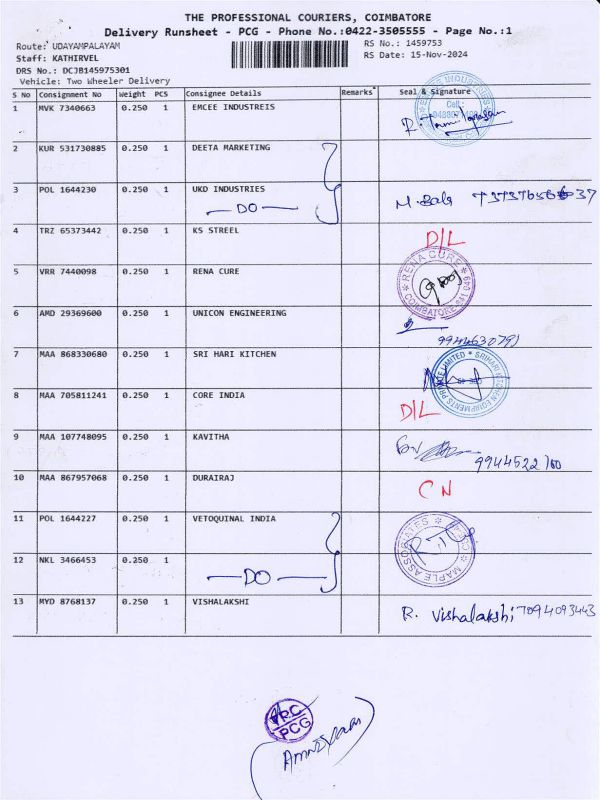 THE PROFESSIONAL COURIERS, COIMBATORE
Delivery Runsheet - PCG - Phone No.:0422-3505555 - Page No.:1
Route: UDAYAMPALAYAM
RS No.: 1459753
Staff: KATHIRVEL
RS Date: 15-Nov-2024
DRS No.: DCJB145975301
Vehicle: Two Wheeler Delivery
S No Consignment No Weight PCS Consignee Details Remarks Seal & Signature
1 MVK 7340663 0.250 1 EMCEE INDUSTREIS
2 KUR 531730885 0.250 1 DEETA MARKETING
3 POL 1644230 0.250 1 UKD INDUSTRIES
DO
4 TRZ 65373442 0.250 1 KS STREEL D/L
5 VRR 7440098 0.250 1 RENA CURE
RENA CURE
6 AMD 29369600 0.250 1 UNICON ENGINEERING
7 MAA 868330680 0.250 1 SRI HARI KITCHEN
SRIHARI KITCHEN EQUIPMENTS PRIVATE LIMITED
8 MAA 705811241 0.250 1 CORE INDIA D/L
9 MAA 107748095 0.250 1 KAVITHA
10 MAA 867957068 0.250 1 DURAIRAJ CN
11 POL 1644227 0.250 1 VETOQUINAL INDIA
MAPLE ASSOCIATES
12 NKL 3466453 0.250 1
DO
13 MYD 8768137 0.250 1 VISHALAKSHI R. Vishalakshi 7094093443
PCG